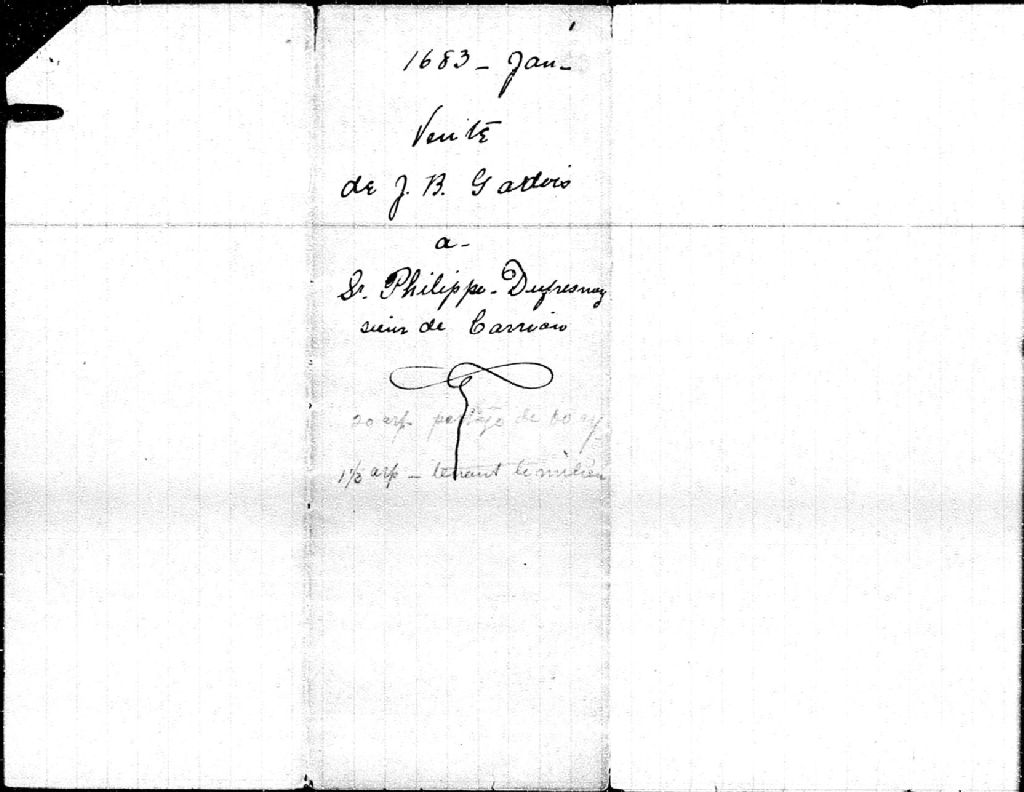 1683 - Jan -
Vente
de J. B. Gadois
a -
Sr. Philippe - Dufresnoy
sieur de Carrion
20 arp
1 1/3 arp - tenant le milieu